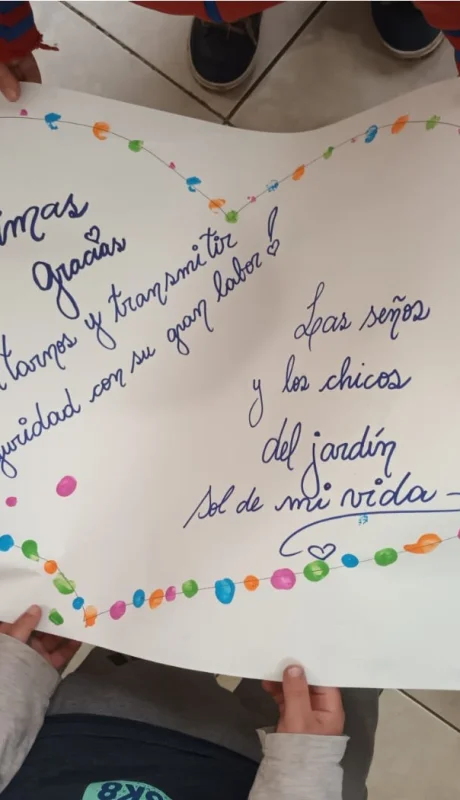 imas
gracias
tarnos y transmitir
guridad con su gran labor!
Las seños
y los chicos
del jardín
Sol de mi vida
SK8